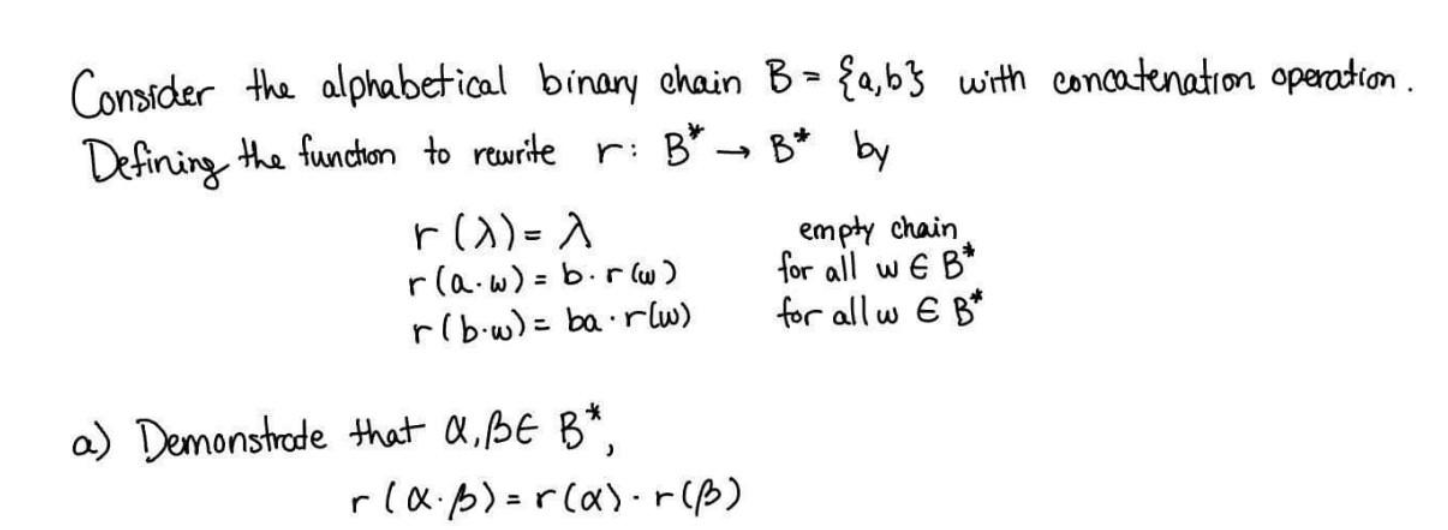 Consider the alphabetical binary chain B = {a,b} with concatenation operation.
Defining the function to rewrite r: B* → B* by
r(λ) = λ empty chain
r(a·w) = b·r(w) for all w ∈ B*
r(b·w) = ba·r(w) for all w ∈ B*
a) Demonstrade that α,β ∈ B*,
r(α·β) = r(α)·r(β)